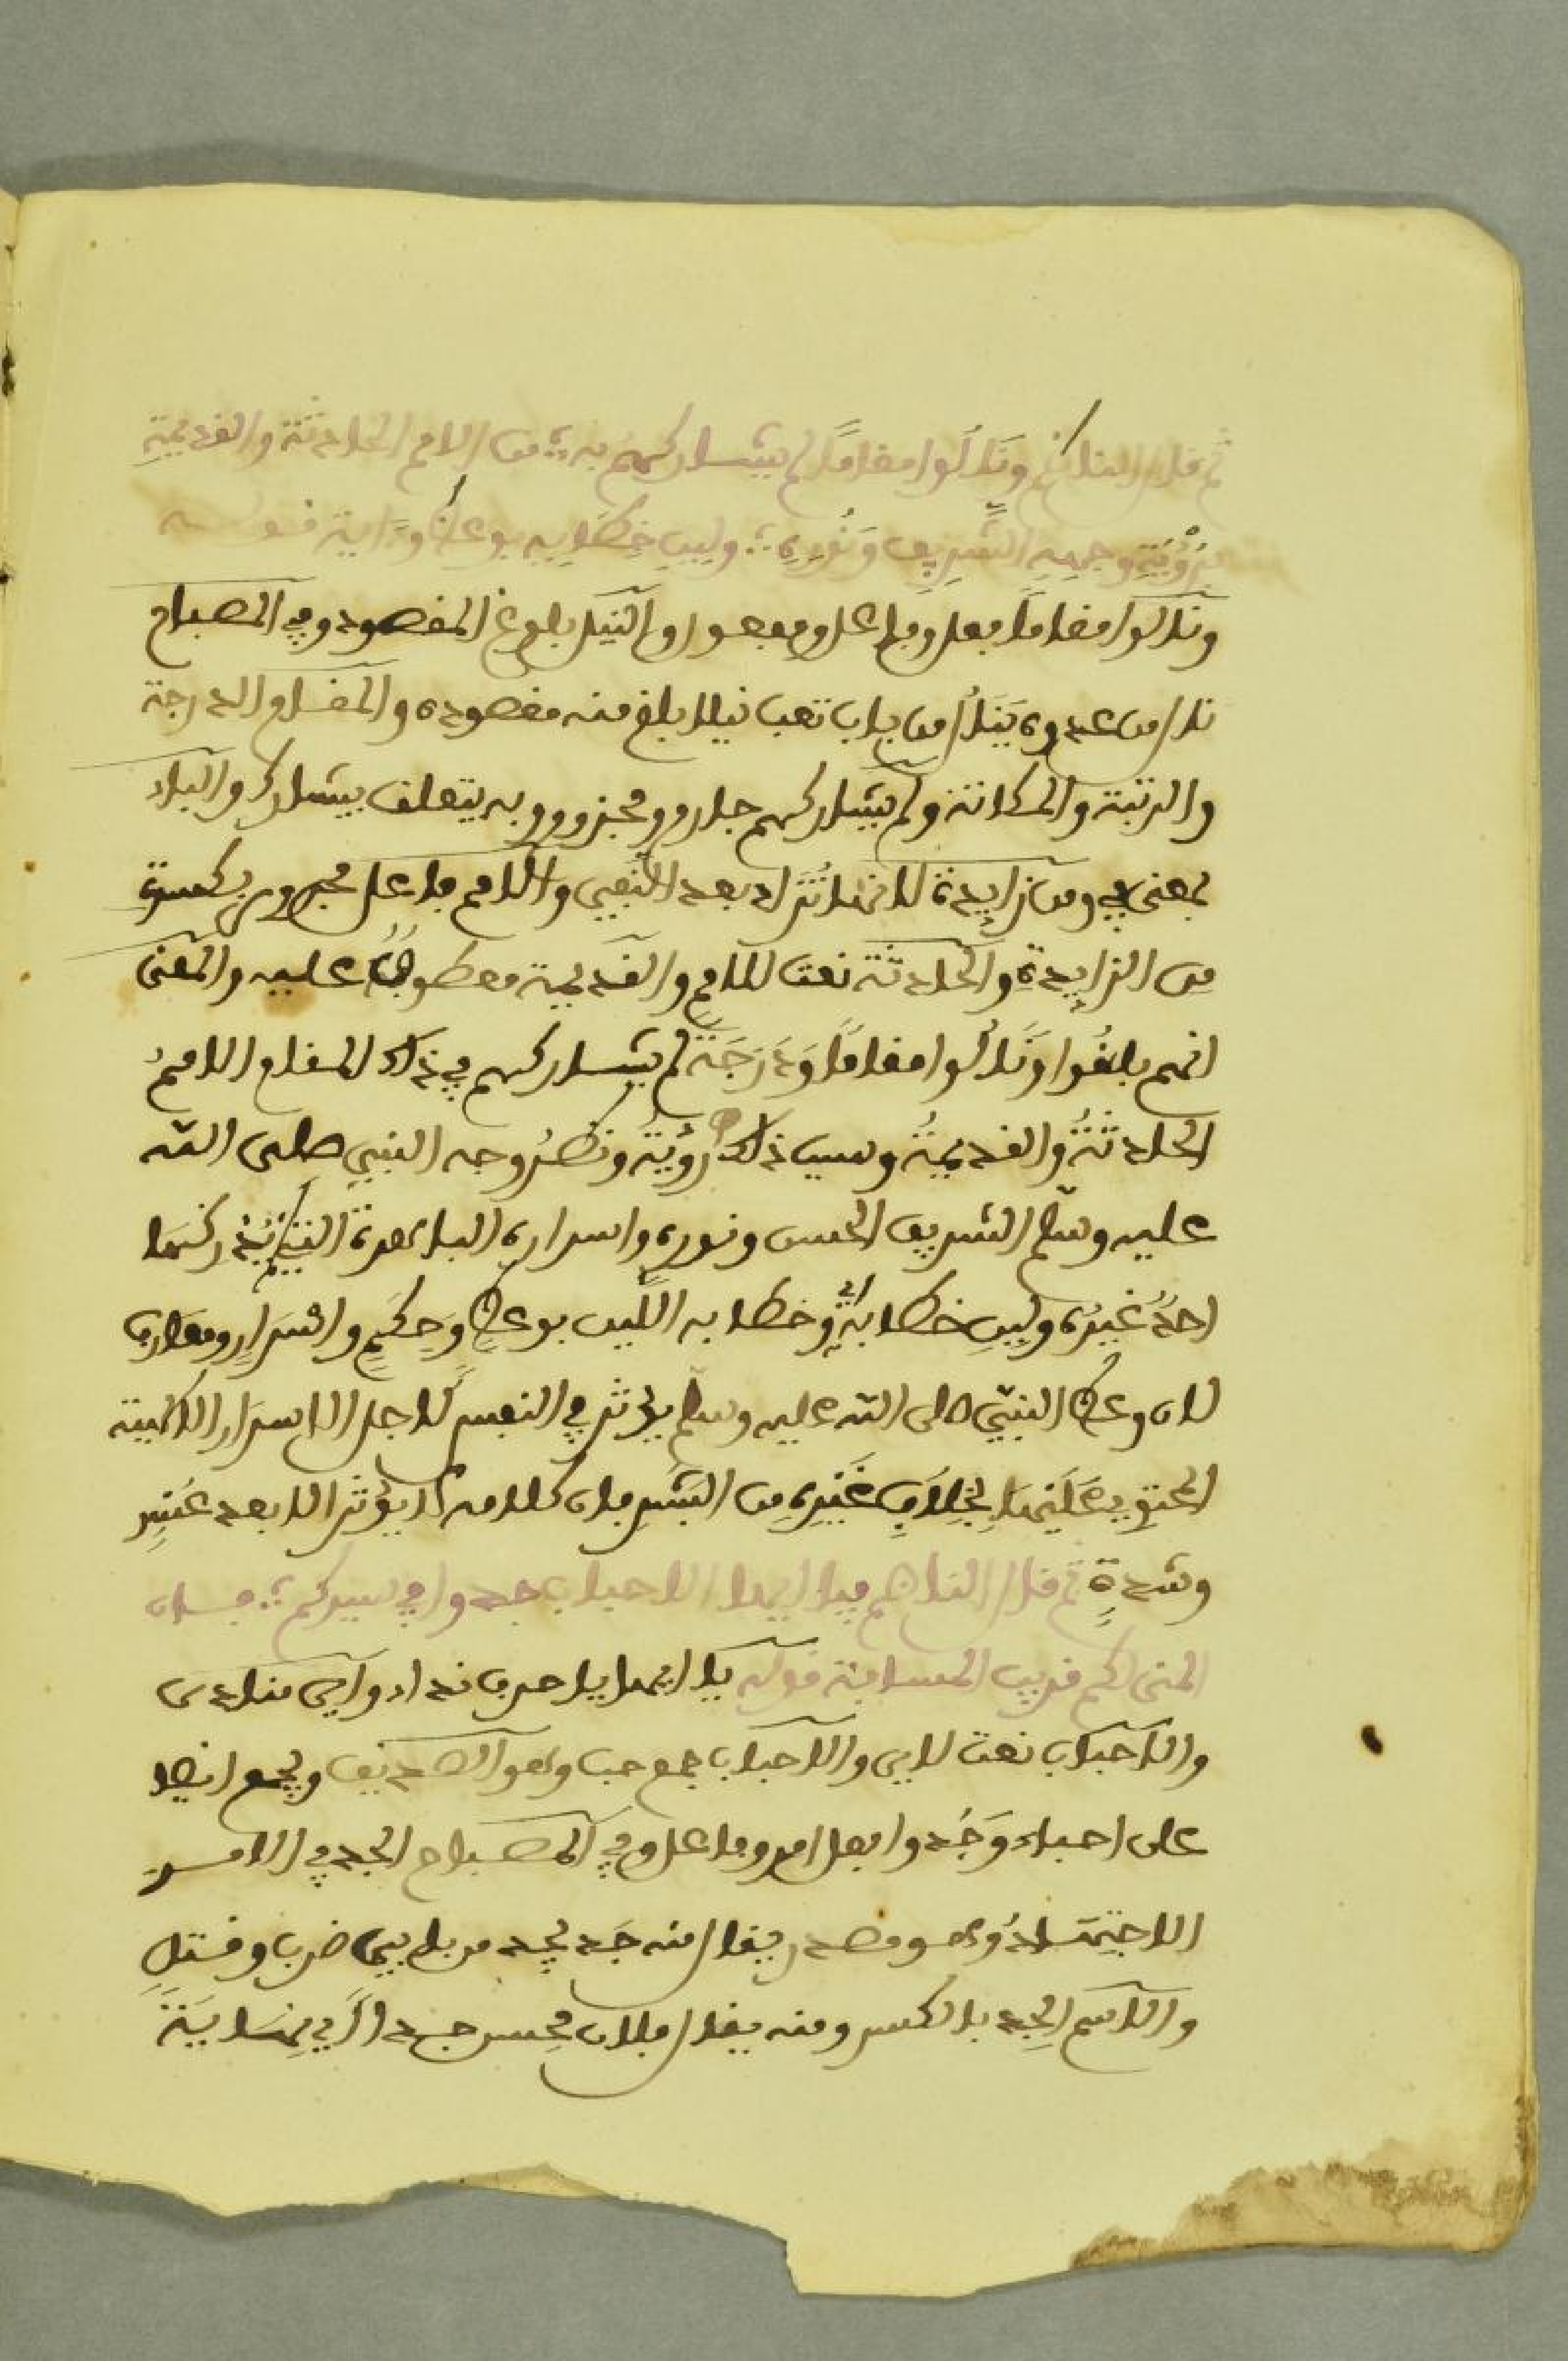 ثم قال الناظم ونالوا مقاما لم يشاركهم به ؛ من الامم الحادثة والقديمة
برؤية وجهه الشريف ونوره ؛ ولين خطابه بوعظ وءاية قوله
ونالوا مقاما فعل وفاعل ومفعول والنيل بلوغ المقصود وفي المصباح
نال من عدوه ينال من باب تعب نيلا بلغ منه مقصوده والمقام الدرجة
والرتبة والمكانة ولم يشاركهم جار ومجزوم وبه يتعلق بيشارك والباء
بمعنى في ومن زايدة لانها تزاد بعد النفي والامم فاعل مجرور بكسرة
من الزايدة والحادثة نعت للامم والقديمة معطوف عليه والمعنى
انهم بلغوا ونالوا مقاما ودرجة لم يشاركهم في ذلك المقام الامم
الحادثة والقديمة وسبب ذلك رؤية ونظر وجه النبي صلى الله
عليه وسلم الشريف الحسن ونوره واسراره الباهرة التي لم يدركها
احد غيره ولين خطابه وخطابه اللين بوعظ وحكم واسرار ومعارف
لان وعظ النبي صلى الله عليه وسلم يؤثر في النفس لاجل الاسرار الالهية
المحتوي عليها بخلاف غيره من البشر فان كلامه لا يؤثر الا بعد عسر
وشدة ثم قال الناظم فيا ايها الاحباب جدوا في سيركم ؛ فسان
المنى لكم قريب المسافة قوله يا ايها يا حرف نداء واي منادى
والاحباب نعت لاي والاحباب جمع حب وهو الصديق ويجمع ايضا
على احباء وجدوا فعل امر وفاعل وفي المصباح الجد في الامر
الاجتهاد وهو مصدر يقال منه جد يجد من بابي ضرب وقتل
والاسم الجد بالكسر ومنه يقال فلان محسن جدا اي نهاية